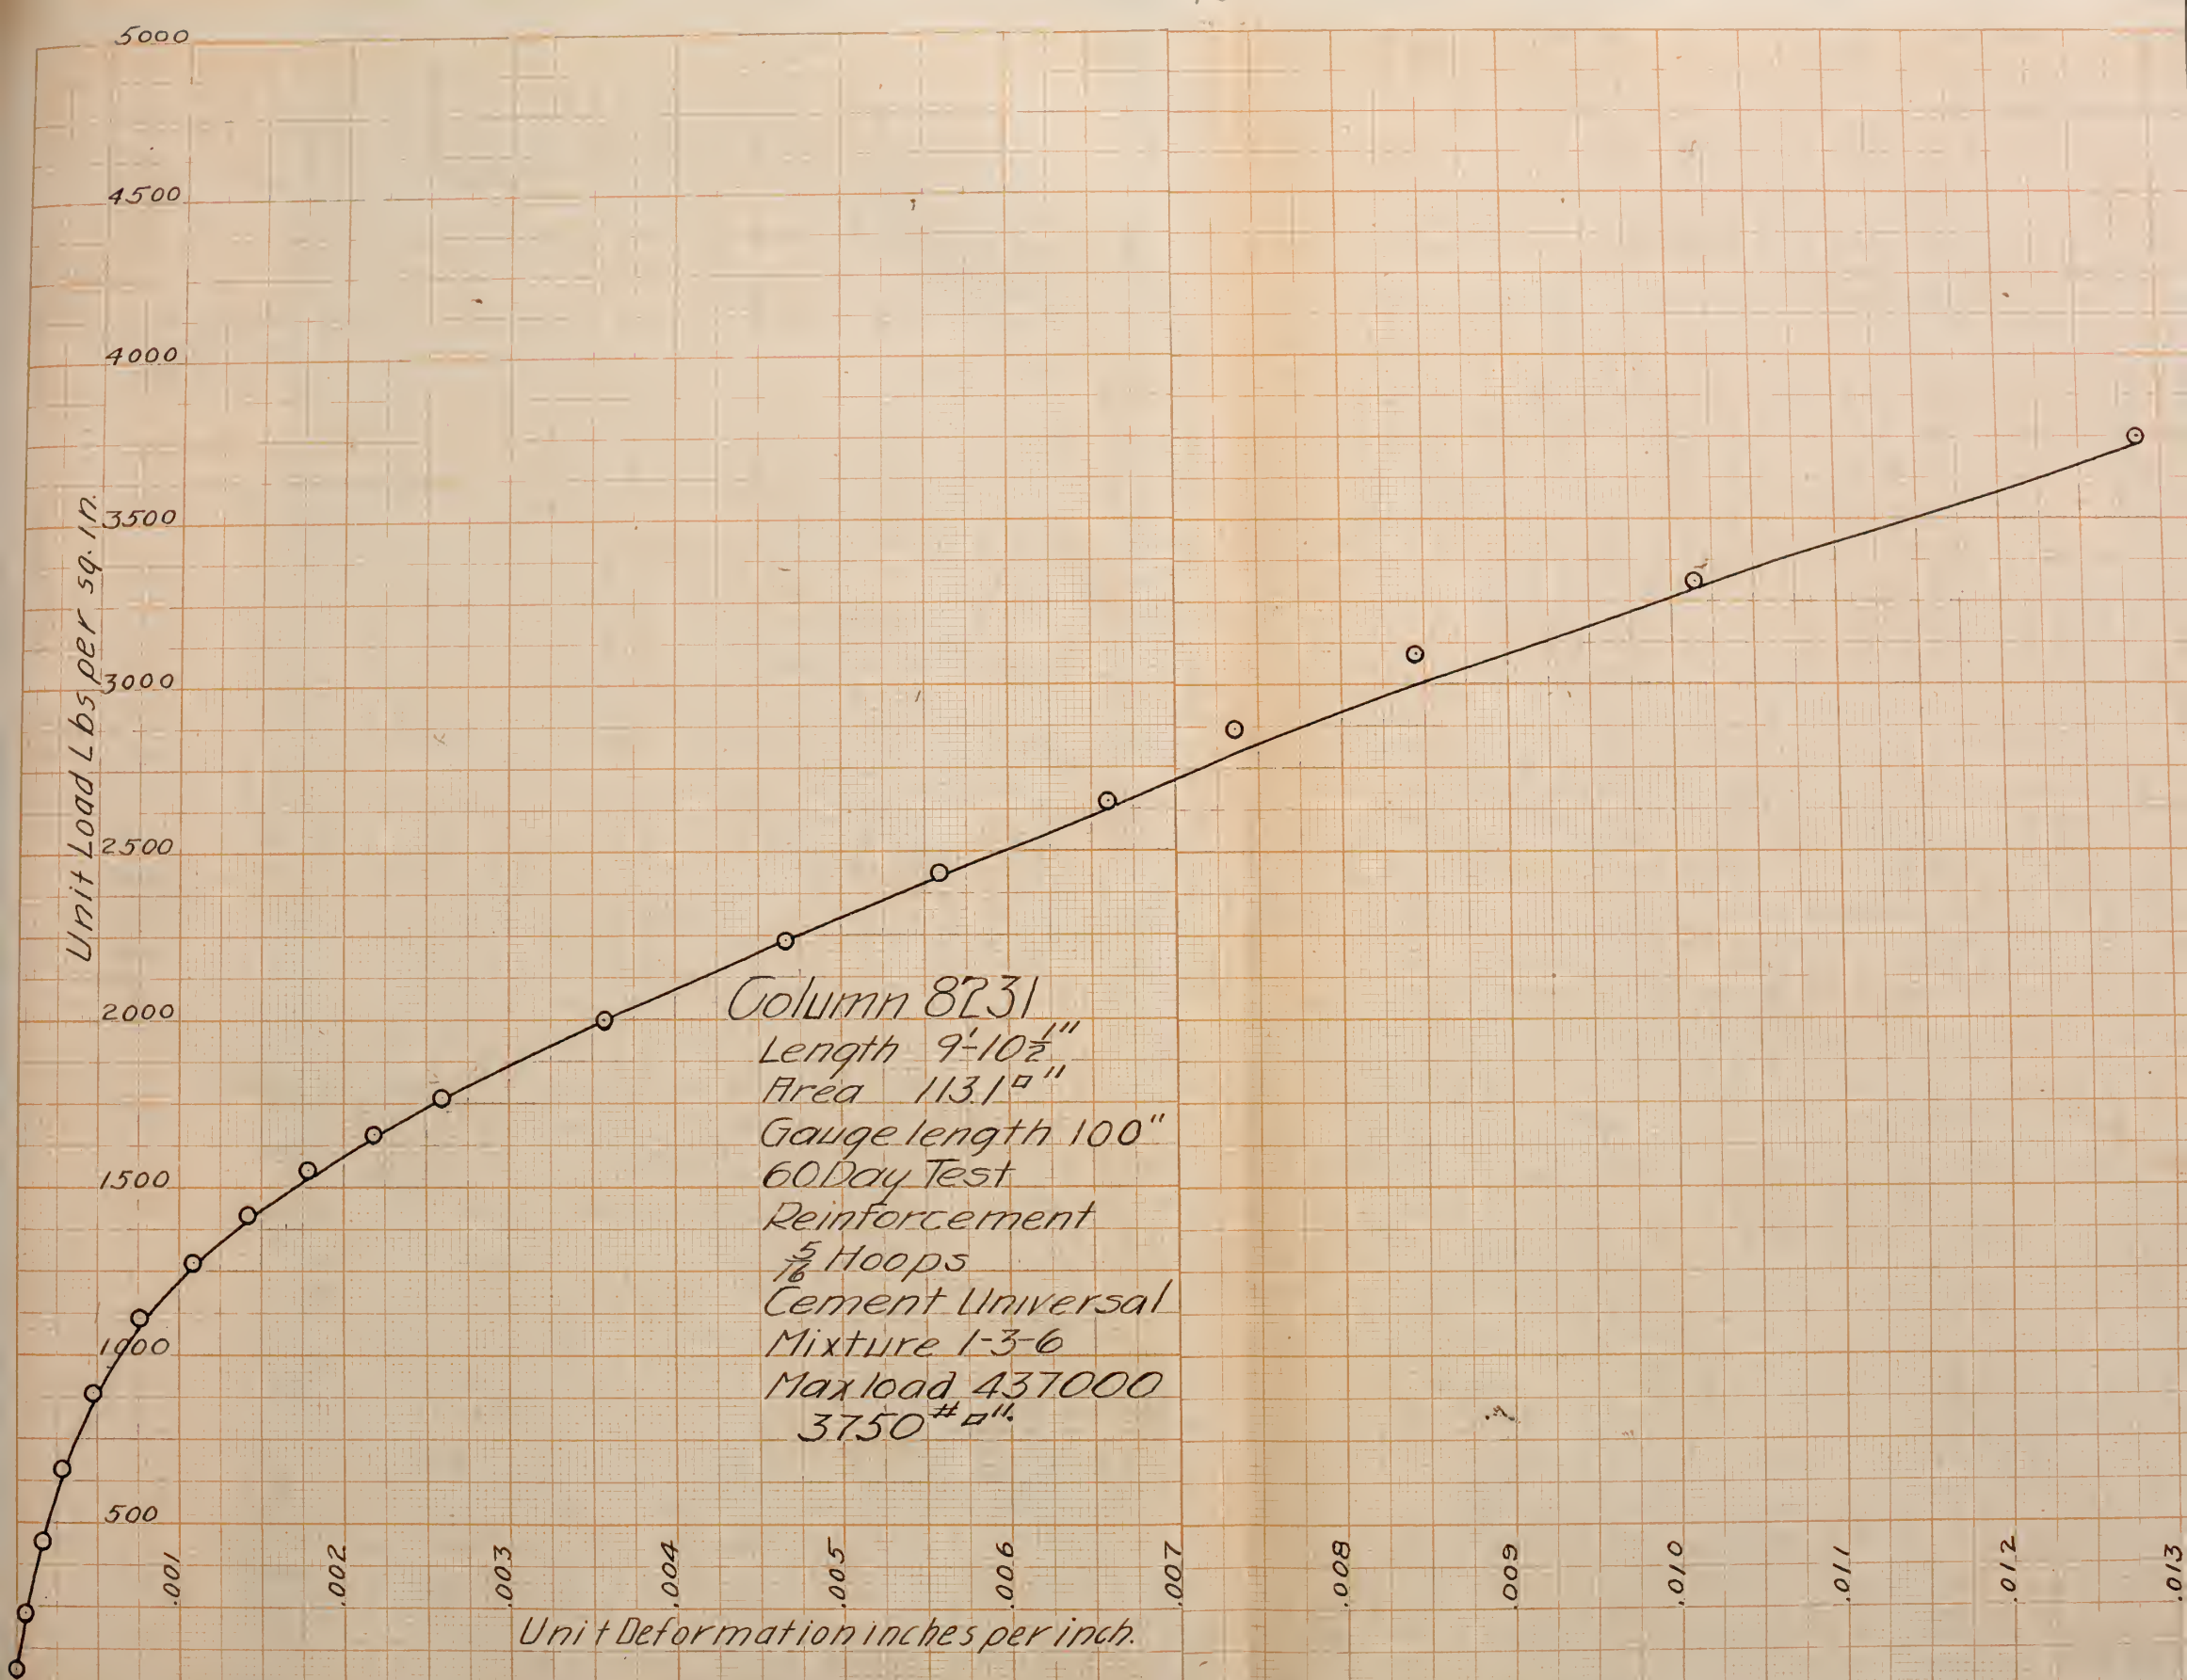 5000
4500
4000
3500
3000
2500
2000
1500
1000
500
Unit Load Lbs per sq. in.
Column 8231
Length 9'-10½"
Area 113.1□"
Gauge length 100"
60 Day Test
Reinforcement
5/16 Hoops
Cement Universal
Mixture 1-3-6
Max load 437000
3750#□".
.001 .002 .003 .004 .005 .006 .007 .008 .009 .010 .011 .012 .013
Unit Deformation inches per inch.